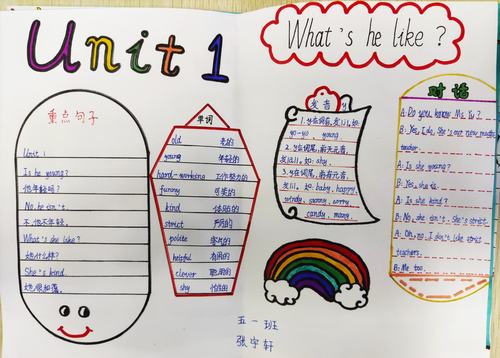 Unit 1
What's he like ?
重点句子
Unit 1
Is he young?
他年轻吗?
No, he isn't.
不,他不年轻。
What's she like?
她什么样?
She's kind.
她很和蔼。
单词
old 老的
young 年轻的
hard-working 工作努力的
funny 可笑的
kind 体贴的
strict 严厉的
polite 客气的
helpful 有用的
clever 聪明的
shy 怕羞的
发音 y
1. y在词首,发[j],如
yo-yo, young
2. y在词尾,前无元音,
发[aɪ],如: shy.
3. y在词尾,前有元音,
发[i],如: baby, happy,
windy, sunny, sorry
candy, many.
对话
A: Do you know Ms Yu ?
B: Yes, I do. She's our new music
teacher.
A: Is she young?
B: Yes, she is.
A: Is she kind?
B: No, she isn't. She's strict.
A: Oh, no. I don't like strict
teachers.
B: Me too.
五一班
张宇轩